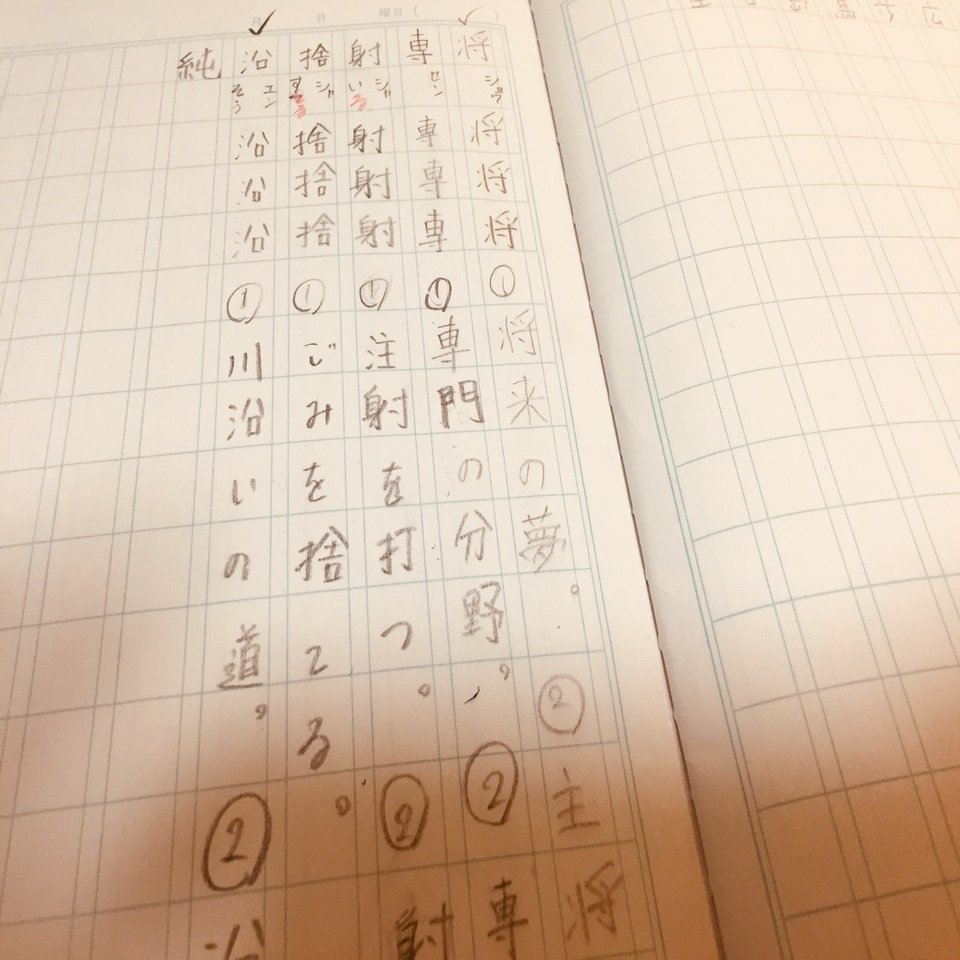 月 日 曜日 ( )
将 ショウ 将 将 将 ① 将来の夢。 ② 主将
専 セン 専 専 専 ① 専門の分野。 ② 専
射 シャ いる 射 射 射 ① 注射を打つ。 ② 射
捨 シャ すてる 捨 捨 捨 ① ごみを捨てる。
沿 エン そう 沿 沿 沿 ① 川沿いの道。 ② 沿
純